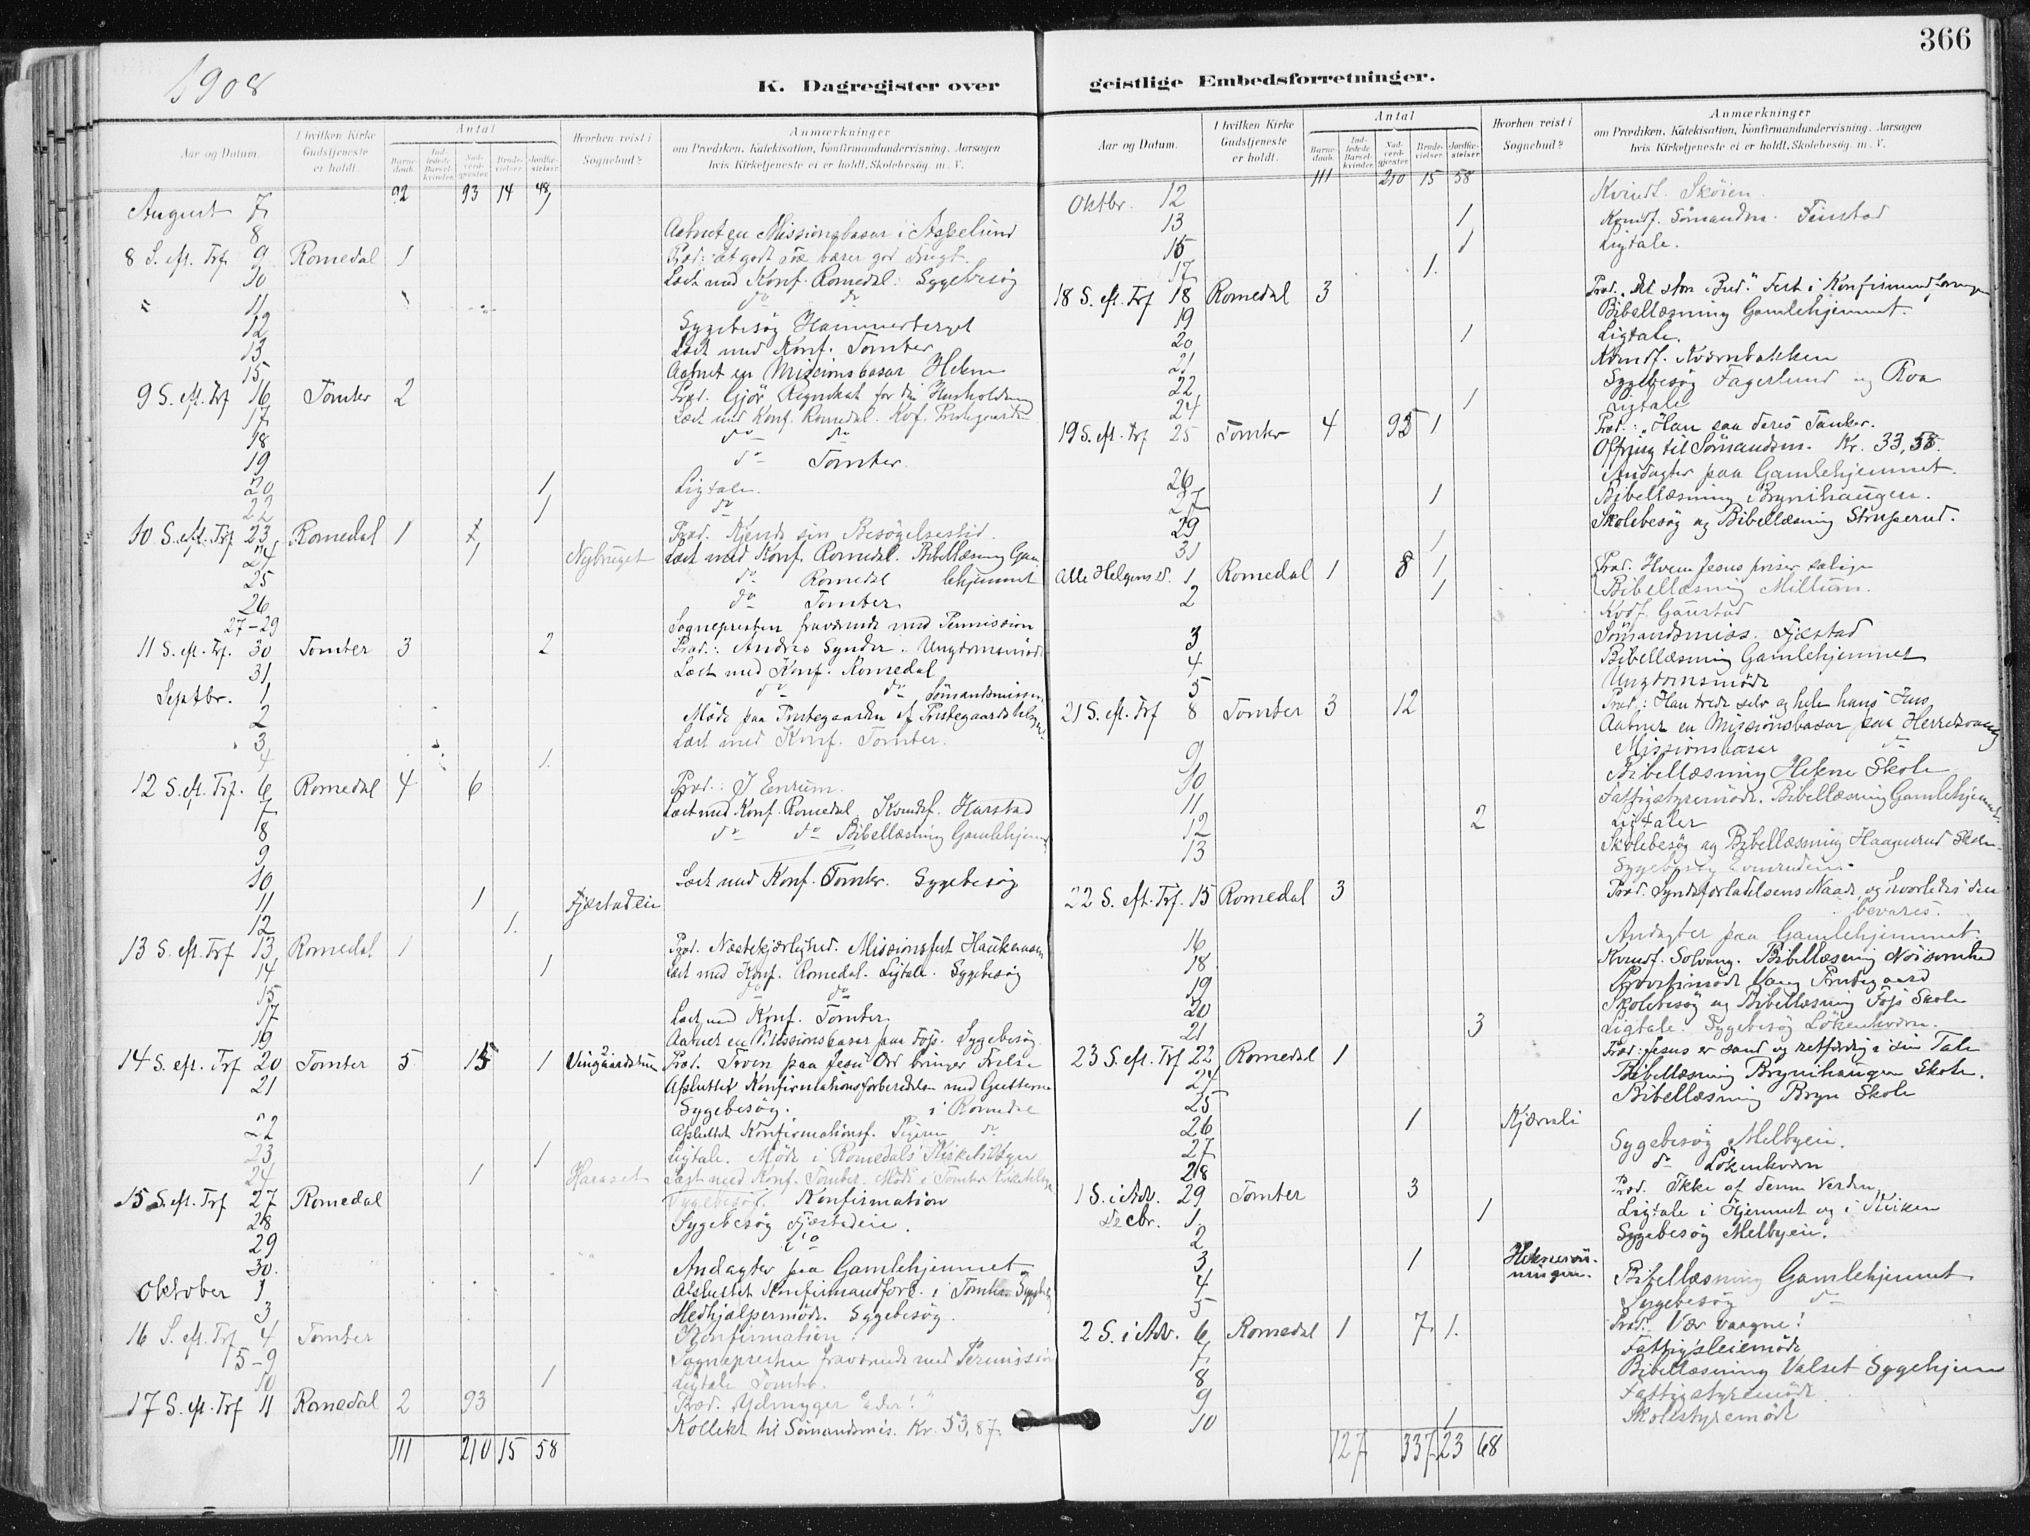 366
1908
K. Dagregister over geistlige Embedsforretninger.
Aar og Datum.
I hvilken Kirke Gudstjeneste er holdt.
Antal
Barnedaab.
Indledede Barselkvinder.
Nadverdgjester
Brudevielser
Jordfæstelser
Hvorhen reist i Sognebud?
Anmærkninger
om Prædiken, Katekisation, Konfirmandundervisning, Aarsagen
hvis Kirketjeneste ei er holdt. Skolebesøg m. V.
92 93 14 48
August 7
8 Aabnet en Missionsbasar i Aspelund
8 S. eft. Trf. 9 Romedal 1 Præd: at godt Træ bærer god Frugt.
10 Læst med Konf. Romedal. Sygebesøg
11 do do
12 Sygebesøg Hammerberget
13 Læst med Konf. Tomter
15 Aabnet en Missionsbasar Helsne
9 S. eft. Trf 16 Tomter 2 Præd. Gjør Regnskab for din Husholdning
17 Læst med Konf. Romedal.
18 do do
19 do Tomter.
20 1 Ligtale.
22 1 do
10 S. eft. Trf 23 Romedal 1 Præd. Kjende sin Besøgelsestid.
24 1 Nybruget Læst med Konf. Romedal. Bibellæsning Gam
25 do Romedal lehjemmet
26 do Tomter
27-29 Sognepresten fraværende med Permission
11 S. eft. Trf. 30 Tomter 3 2 Præd.: Andres Synder. Ungdomsmøde
31 Læst med Konf. Romedal
Septbr. 1 do do Sømandsmission
2 Møde paa Prestegaarden
3 Læst med Konf. Tomter.
4 1.
12 S. eft. Trf. 6 Romedal 4 6 Præd.: I Enrum.
7 Læst med Konf. Romedal. Kvindef. Harstad
8 do do Bibellæsning Gamlehjemmet
9
10 Læst med Konf. Tomter. Sygebesøg
11 1 Fjæstadeie
12 1.
13 S. eft. Trf 13 Romedal 1 Præd. Næstekjærlighed. Missionsfest
14 1 Læst med Konf. Romedal. Ligtale. Sygebesøg
15 do do
17 Læst med Konf. Tomter.
19 Aabnet en Missionsbasar paa Fops. Sygebesøg
14 S. eft. Trf 20 Tomter 5 15 1 Præd. Troen paa Jesu Ord bringer Frelse
21 Afsluttet Konfirmationsforberedelsen med Gutterne
Sygebesøg. i Romedal
22 Afsluttet Konfirmationsf. Pigerne do
23 1 Ligtale. Møde i Romedals Kirketilsyn
24 1 Haraset Læst med Konf. Tomter. Møde i Tomter Kirketilsyn
15 S. eft. Trf 27 Romedal Konfirmation
28 Sygebesøg Fjæstadeie.
29 do
30. Andagter paa Gamlehjemmet
Oktober 1 Afsluttet Konfirmandforb. i Tomter Sygebesøg
3 Medhjælpermøde. Sygebesøg.
16 S. eft. Trf 4 Tomter Konfirmation.
5-9 Sognepresten fraværende med Permission
10 1 Ligtale Tomter.
17 S. eft. Trf 11 Romedal 2 93 Præd. Ydmyger Eder!
Kollekt til Sømandsmis. Kr. 53,87.
111 210 15 58
Aar og Datum.
I hvilken Kirke Gudstjeneste er holdt.
Antal
Barnedaab.
Indledede Barselkvinder.
Nadverdgjester
Brudevielser
Jordfæstelser
Hvorhen reist i Sognebud?
Anmærkninger
om Prædiken, Katekisation, Konfirmandundervisning, Aarsagen
hvis Kirketjeneste ei er holdt. Skolebesøg m. V.
111 210 15 58
Oktbr. 12 Kvindf. Skøien.
13 1 Kvindf. Sømandsm. Finstad
15 1 Ligtale.
17 1.
18 S. eft. Trf 18 Romedal 3 Præd. "Det store Bud." Fest i Konfirmandforeningen
19 Bibellæsning Gamlehjemmet.
20 1 Ligtale.
21 Kvindf. Kværnbakken
22 Sygebesøg Fagerlund og Roa
24 1 Ligtale
19 S. eft. Trf 25 Tomter 4 95 1 Præd.: "Han saa deres Tanker.
Ofring til Sømandsm. Kr. 33,58.
26 Andagter paa Gamlehjemmet.
27 1 Bibellæsning Brynihaugen.
29 Skolebesøg og Bibellæsning Struperud.
31 1
Alle Helgens d. 1 Romedal 1 8 1 Præd. Hvem Jesus priser salige
2 1 Bibellæsning Millum.
Kvdf. Gaustad
3 Sømandsmiss. Fjæstad
4 Bibellæsning Gamlehjemmet
5 Ungdomsmøde
21 S. eft. Trf 8 Tomter 3 12 Præd.: Han trode selv og hele hans Hus
Aabner en Missionsbasar paa
9 Missionsbasar do
10 Bibellæsning Helsne Skole
11 Fattigstyremøde. Bibellæsning Gamlehjemmet.
12 2 Ligtaler
13 Skolebesøg og Bibellæsning Haagenrud Skole
Sygebesøg
22 S. eft. Trf. 15 Romedal 3 Præd. Syndsforladelsens Naade og hvorledes den
bevares.
16 Andagter paa Gamlehjemmet.
18 Kvindf. Solvang. Bibellæsning Nøisomhed
19 Provstimøde Vang Prestegaard
20 Skolebesøg og Bibellæsning Fops Skole
21 3 Ligtale. Sygebesøg Løkenhværn.
23 S. eft. Trf 22 Romedal 1 Præd: Jesus er sand og retfærdig i sin Tale
24 Bibellæsning Brynihaugen Skole.
25 Bibellæsning Bryn Skole
26 1 Kjærnsli
27 Sygebesøg Melbyeie.
28 do Løkenhværn
1 S. i Adv. 29 Tomter 3 Præd. Ikke af denne Verden
Decbr. 1 1 Ligtale i Hjemmet og i Kirken
2 Sygebesøg Melbyeie.
3 1
4 Bibellæsning Gamlehjemmet
5 Sygebesøg do
2 S. i Adv. 6 Romedal 1 7 1. Præd. Vær vaagne!
7
8 Bibellæsning Valset Sygehjem
9 Fattigstyremøde
10 1 Skolestyremøde
127 337 23 68